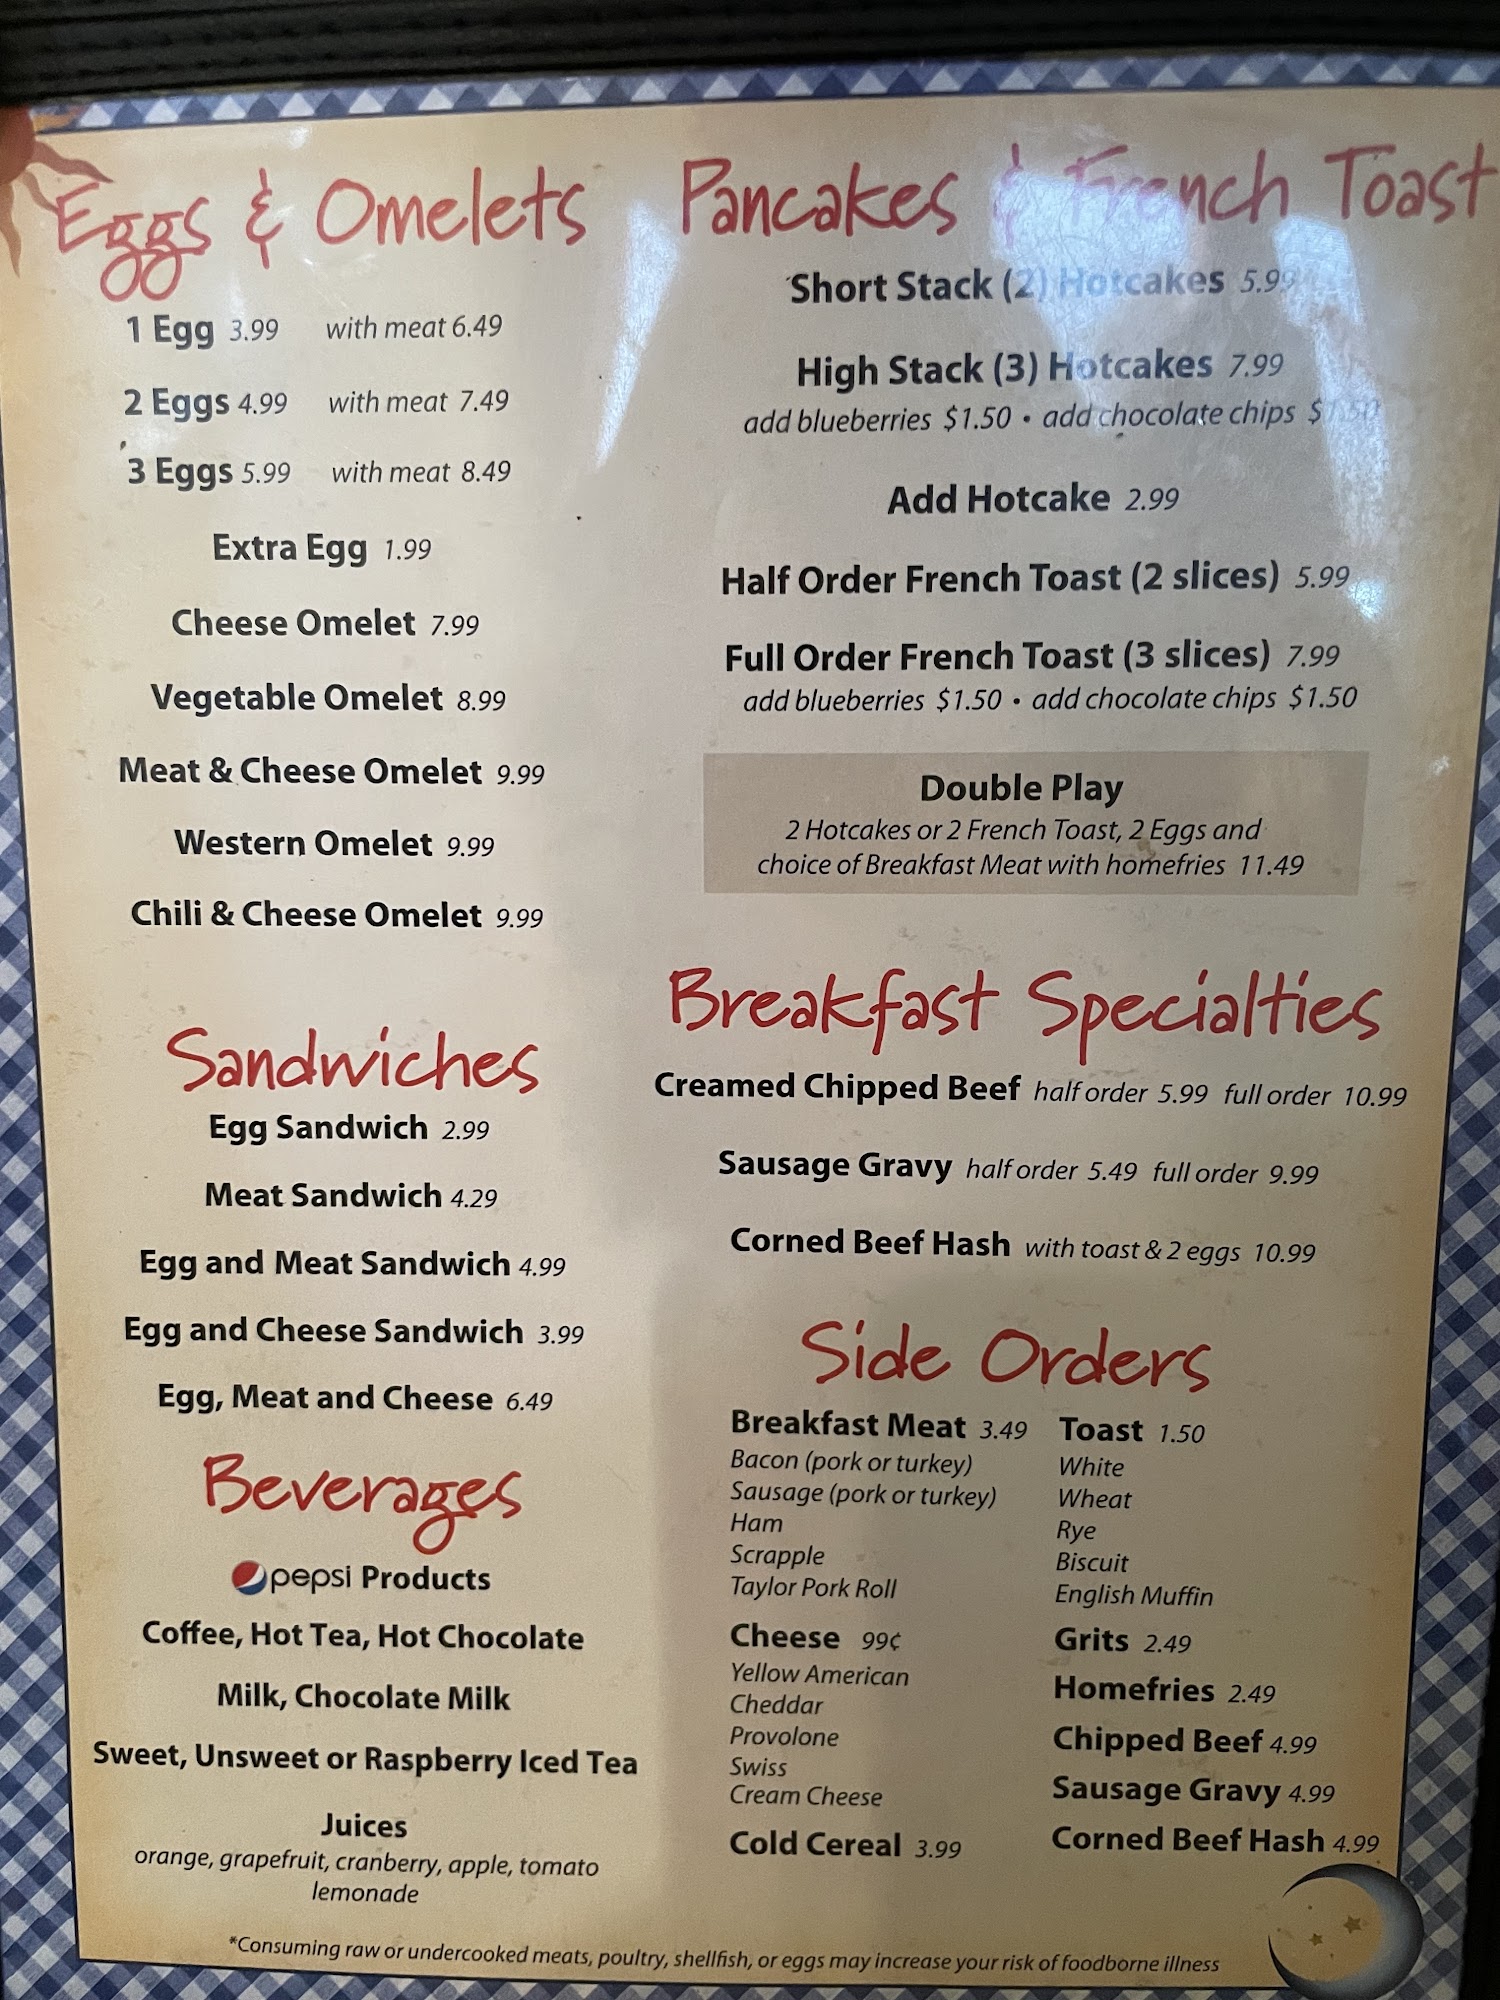 Eggs & Omelets
1 Egg 3.99 with meat 6.49
2 Eggs 4.99 with meat 7.49
3 Eggs 5.99 with meat 8.49
Extra Egg 1.99
Cheese Omelet 7.99
Vegetable Omelet 8.99
Meat & Cheese Omelet 9.99
Western Omelet 9.99
Chili & Cheese Omelet 9.99
Sandwiches
Egg Sandwich 2.99
Meat Sandwich 4.29
Egg and Meat Sandwich 4.99
Egg and Cheese Sandwich 3.99
Egg, Meat and Cheese 6.49
Beverages
pepsi Products
Coffee, Hot Tea, Hot Chocolate
Milk, Chocolate Milk
Sweet, Unsweet or Raspberry Iced Tea
Juices
orange, grapefruit, cranberry, apple, tomato
lemonade
Pancakes & French Toast
Short Stack (2) Hotcakes 5.99
High Stack (3) Hotcakes 7.99
add blueberries $1.50 • add chocolate chips $1.50
Add Hotcake 2.99
Half Order French Toast (2 slices) 5.99
Full Order French Toast (3 slices) 7.99
add blueberries $1.50 • add chocolate chips $1.50
Double Play
2 Hotcakes or 2 French Toast, 2 Eggs and
choice of Breakfast Meat with homefries 11.49
Breakfast Specialties
Creamed Chipped Beef half order 5.99 full order 10.99
Sausage Gravy half order 5.49 full order 9.99
Corned Beef Hash with toast & 2 eggs 10.99
Side Orders
Breakfast Meat 3.49
Bacon (pork or turkey)
Sausage (pork or turkey)
Ham
Scrapple
Taylor Pork Roll
Cheese 99¢
Yellow American
Cheddar
Provolone
Swiss
Cream Cheese
Cold Cereal 3.99
Toast 1.50
White
Wheat
Rye
Biscuit
English Muffin
Grits 2.49
Homefries 2.49
Chipped Beef 4.99
Sausage Gravy 4.99
Corned Beef Hash 4.99
*Consuming raw or undercooked meats, poultry, shellfish, or eggs may increase your risk of foodborne illness